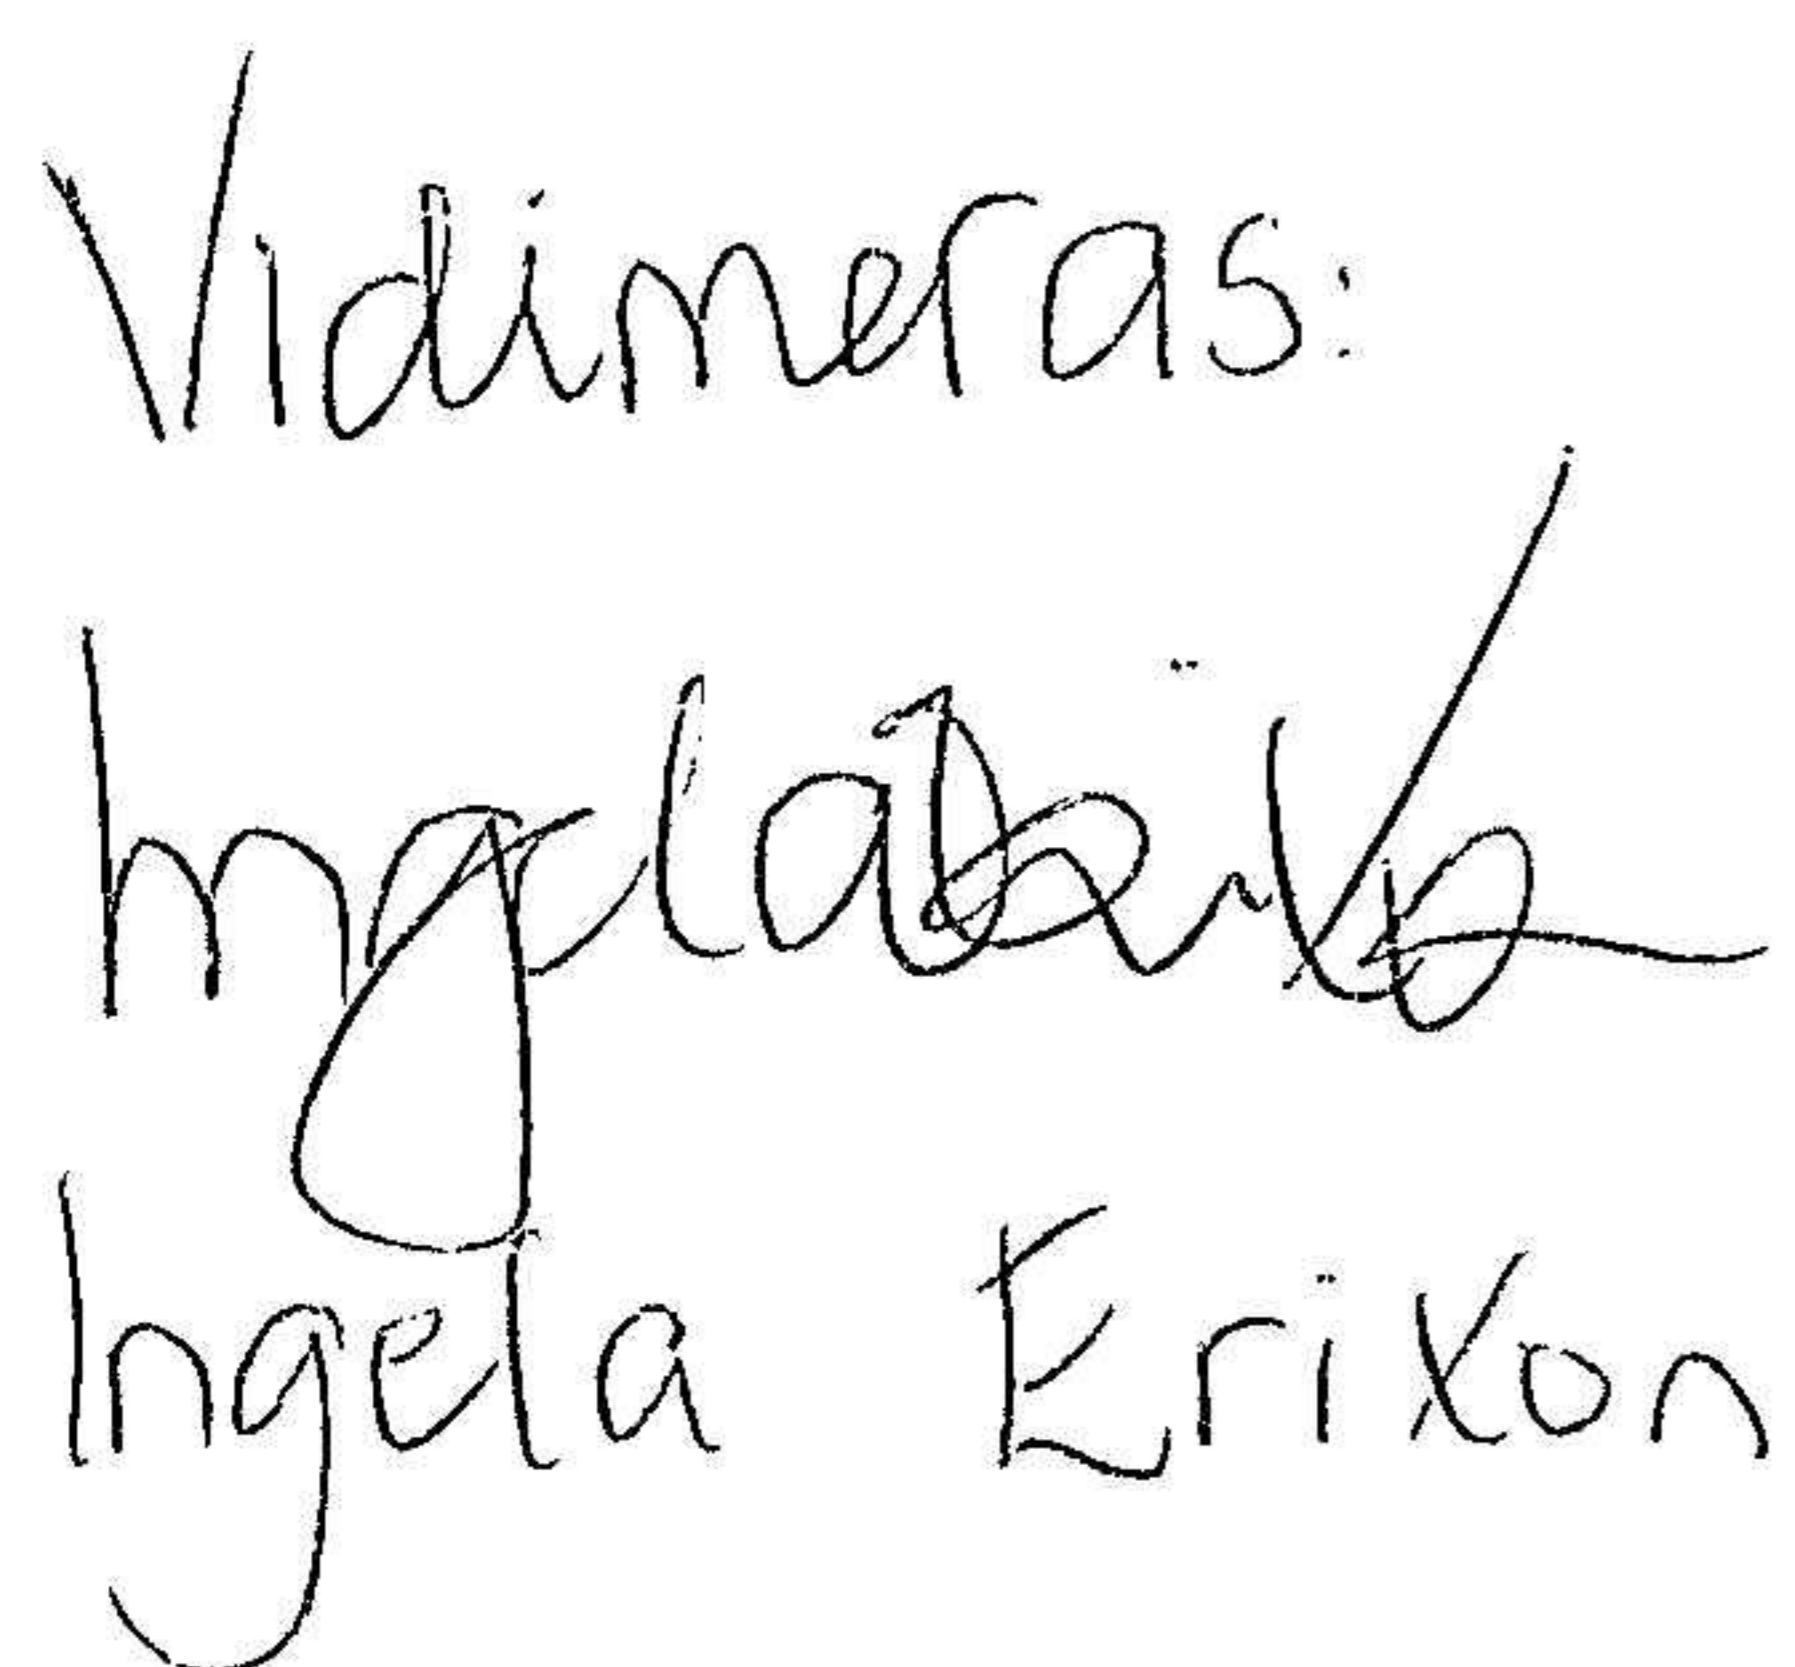 Vidimeras:
Ingela
Ingela Erixon